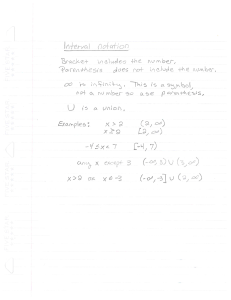 Interval notation
Bracket includes the number.
Parenthesis does not include the number.
∞ is infinity. This is a symbol,
not a number so use parenthesis.
U is a union.
Examples: x > 2 (2, ∞)
x ≥ 2 [2, ∞)
-4 ≤ x < 7 [-4, 7)
any x except 3 (-∞, 3) U (3, ∞)
x > 2 or x ≤ -3 (-∞, -3] U (2, ∞)